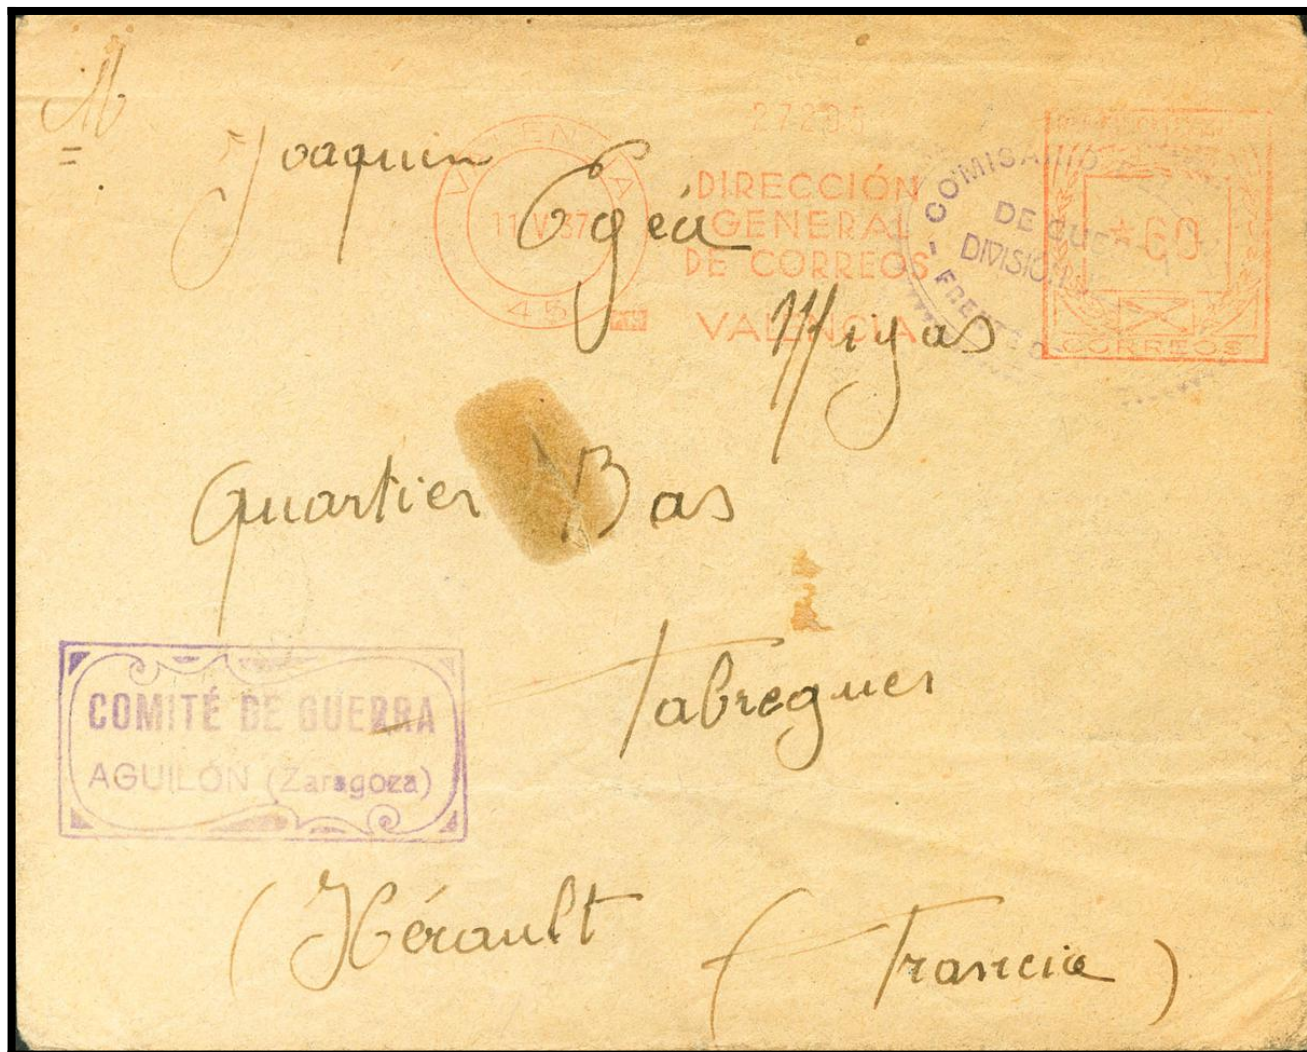 M
Joaquin
Egéa
Migas
Quartier Bas
Fabregues
(Hérault
(Francia)
VALENCIA
11 V 37
45
DIRECCIÓN
GENERAL
DE CORREOS
VALENCIA
COMISARIO
DE GUERRA
DIVISION
FRENTE
60
CORREOS
COMITÉ DE GUERRA
AGUILÓN (Zaragoza)